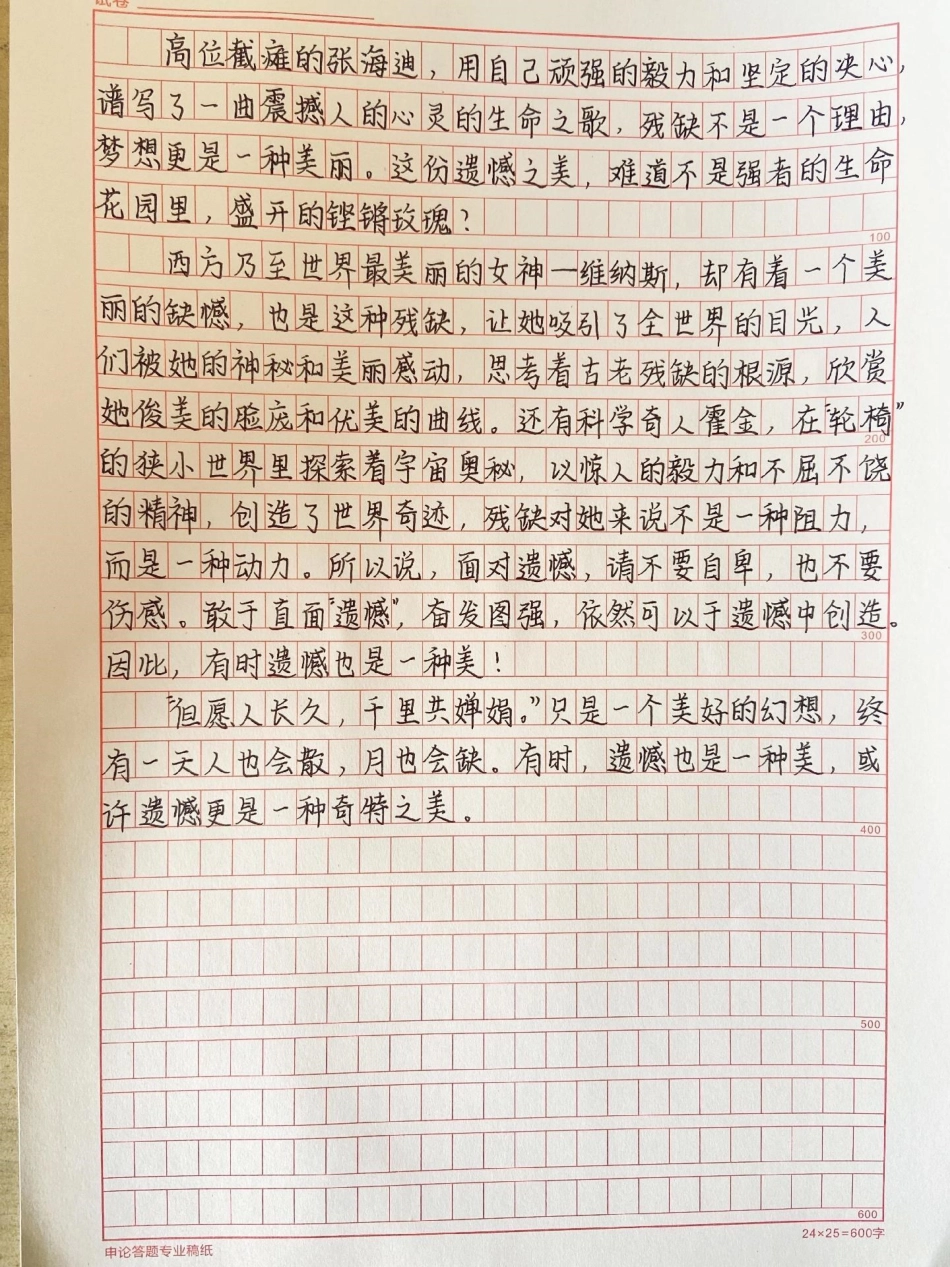 试卷
高位截瘫的张海迪，用自己顽强的毅力和坚定的决心，
谱写了一曲震撼人的心灵的生命之歌，残缺不是一个理由，
梦想更是一种美丽。这份遗憾之美，难道不是强者的生命
花园里，盛开的铿锵玫瑰？
100
西方乃至世界最美丽的女神—维纳斯，却有着一个美
丽的缺憾，也是这种残缺，让她吸引了全世界的目光，人
们被她的神秘和美丽感动，思考着古老残缺的根源，欣赏
她俊美的脸庞和优美的曲线。还有科学奇人霍金，在“轮椅”
200
的狭小世界里探索着宇宙奥秘，以惊人的毅力和不屈不饶
的精神，创造了世界奇迹，残缺对她来说不是一种阻力，
而是一种动力。所以说，面对遗憾，请不要自卑，也不要
伤感。敢于直面“遗憾”，奋发图强，依然可以于遗憾中创造。
300
因此，有时遗憾也是一种美！
“但愿人长久，千里共婵娟。”只是一个美好的幻想，终
有一天人也会散，月也会缺。有时，遗憾也是一种美，或
许遗憾更是一种奇特之美。
400
500
600
24×25=600字
申论答题专业稿纸